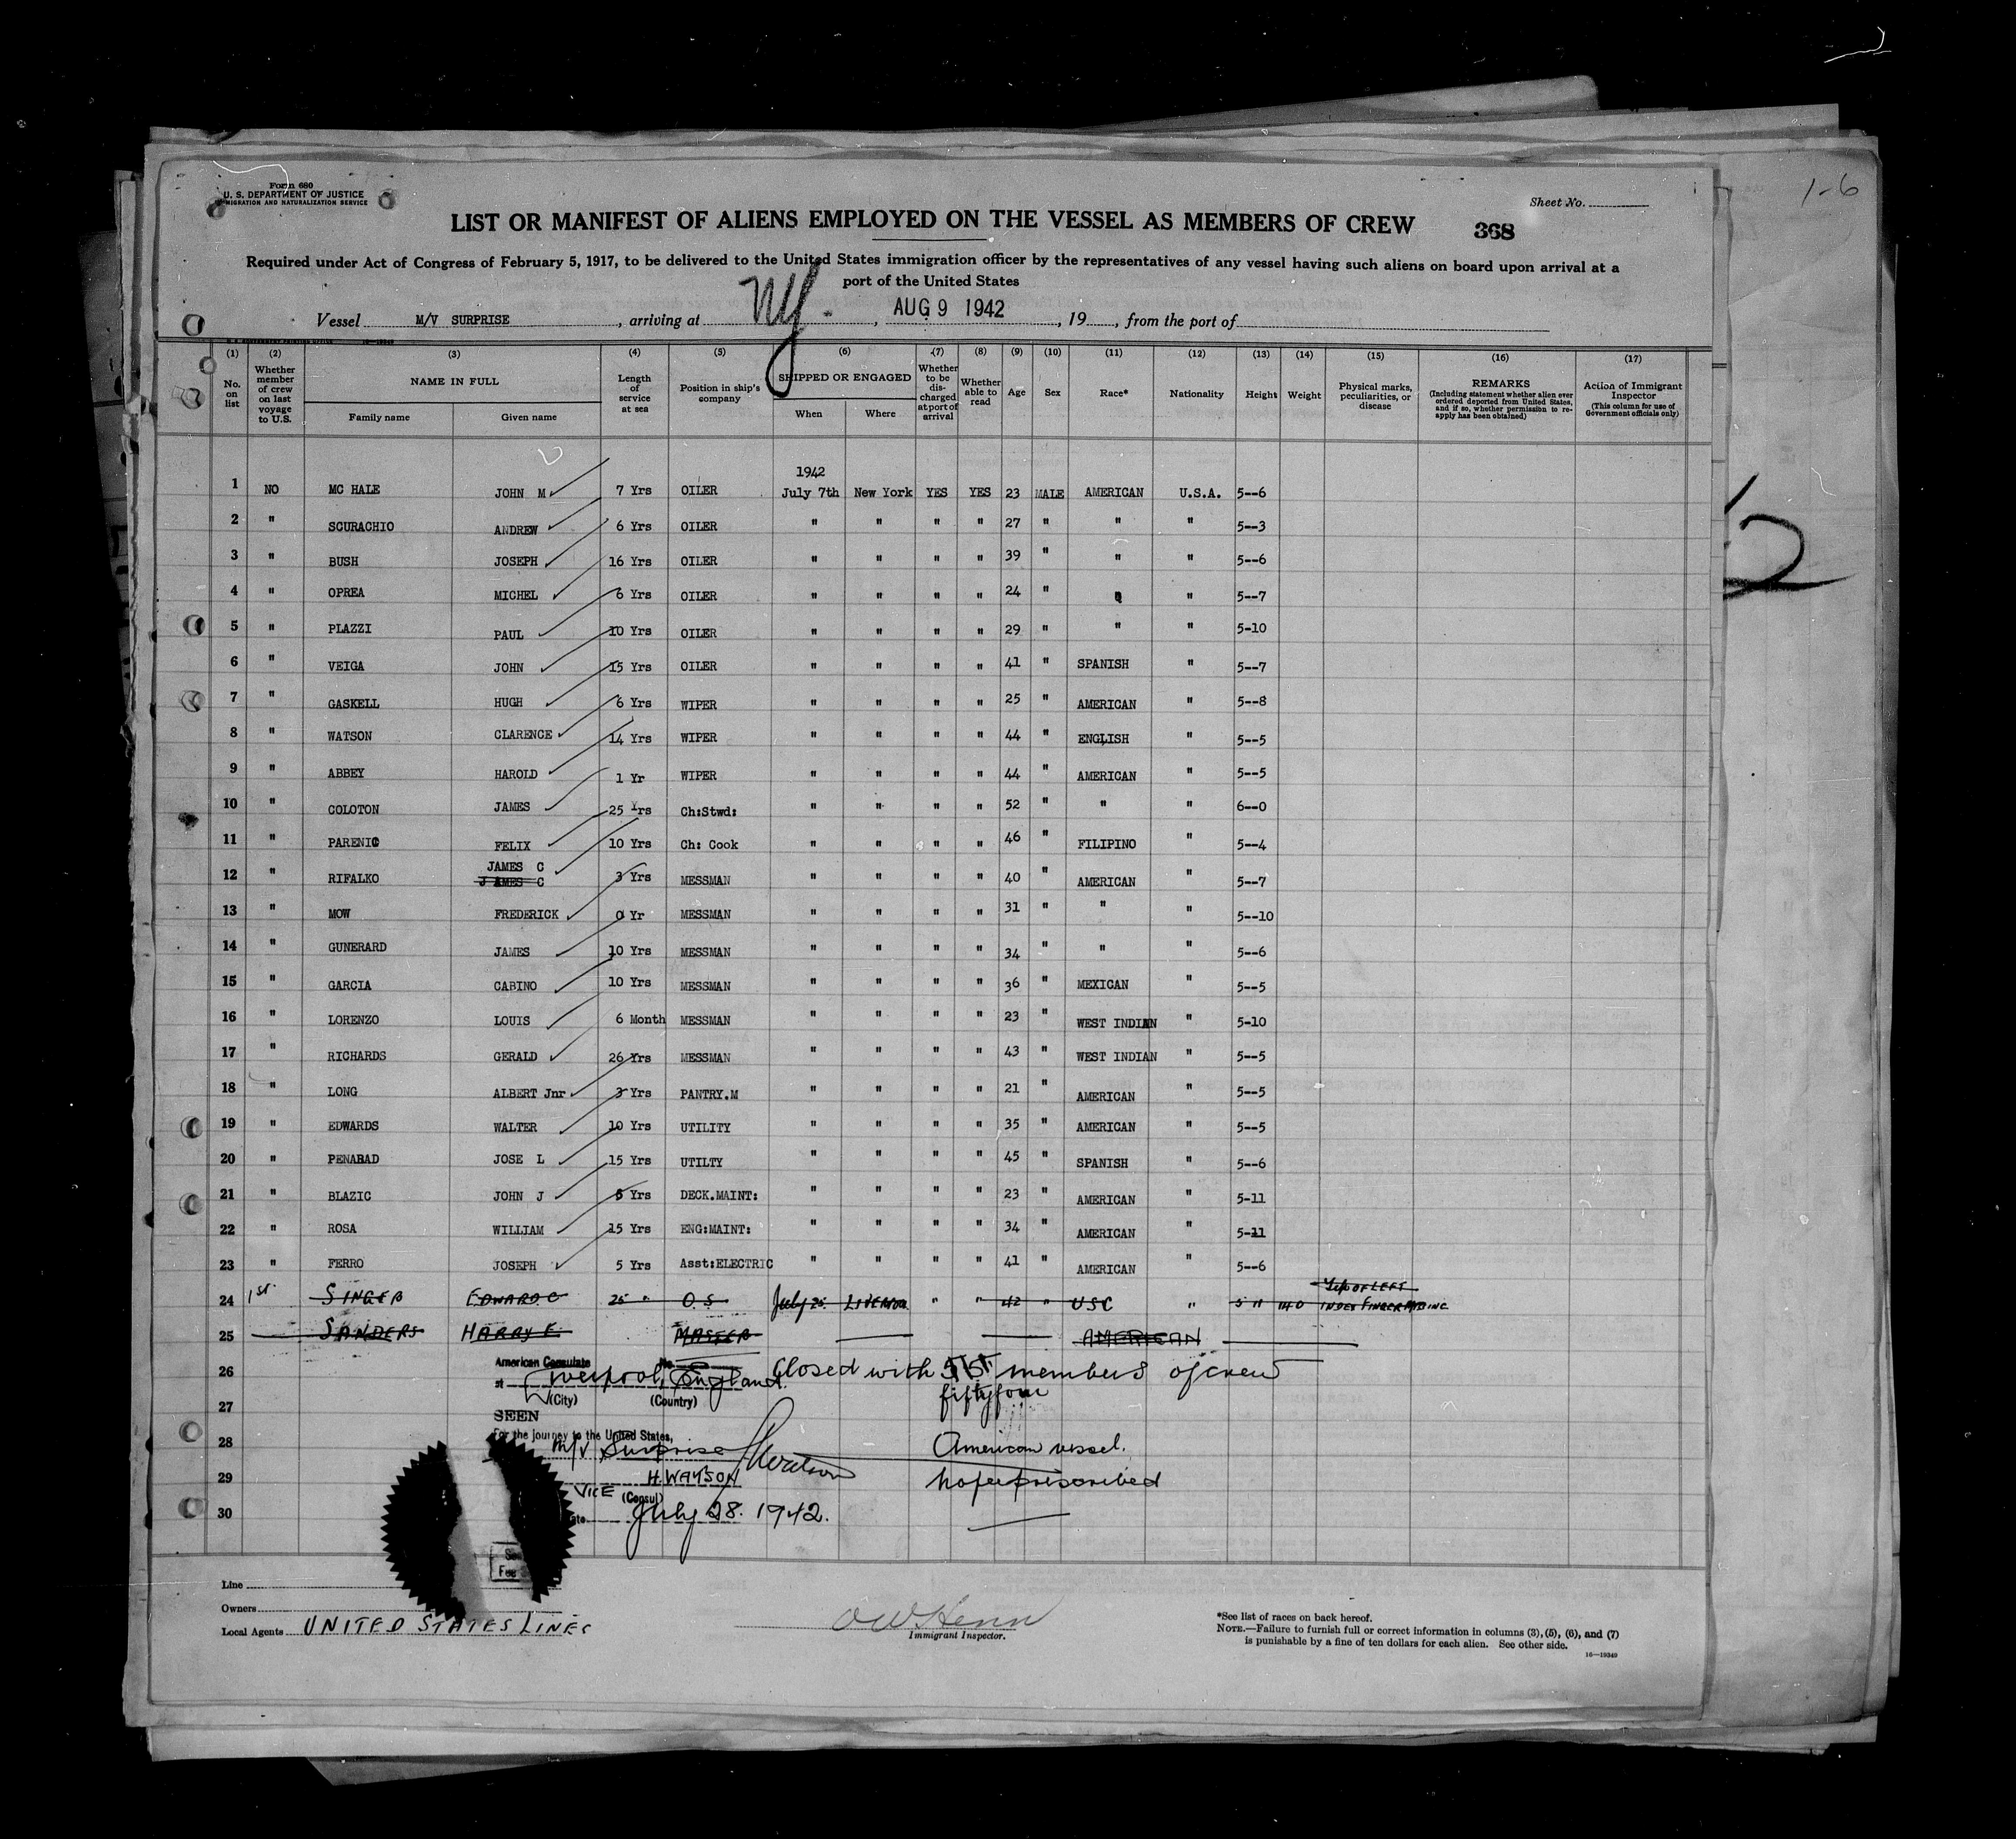 1-6
Form 680
U. S. DEPARTMENT OF JUSTICE
MIGRATION AND NATURALIZATION SERVICE
Sheet No.
LIST OR MANIFEST OF ALIENS EMPLOYED ON THE VESSEL AS MEMBERS OF CREW 368
Required under Act of Congress of February 5, 1917, to be delivered to the United States immigration officer by the representatives of any vessel having such aliens on board upon arrival at a
port of the United States
Vessel M/V SURPRISE, arriving at NY., AUG 9 1942, 19, from the port of
(1) (2) (3) (4) (5) (6) (7) (8) (9) (10) (11) (12) (13) (14) (15) (16) (17)
No. on list Whether member of crew on last voyage to U.S. NAME IN FULL Family name Given name Length of service at sea Position in ship's company SHIPPED OR ENGAGED When Where Whether to be discharged at port of arrival Whether able to read Age Sex Race* Nationality Height Weight Physical marks, peculiarities, or disease REMARKS (Including statement whether alien ever ordered deported from United States, and if so, whether permission to re-apply has been obtained) Action of Immigrant Inspector (This column for use of Government officials only)
1942
1 NO MC HALE JOHN M 7 Yrs OILER July 7th New York YES YES 23 MALE AMERICAN U.S.A. 5--6
2 " SCURACHIO ANDREW 6 Yrs OILER " " " " 27 " " " 5--3
3 " BUSH JOSEPH 16 Yrs OILER " " " " 39 " " " 5--6
4 " OPREA MICHEL 6 Yrs OILER " " " " 24 " " " 5--7
5 " PLAZZI PAUL 10 Yrs OILER " " " " 29 " " " 5-10
6 " VEIGA JOHN 15 Yrs OILER " " " " 41 " SPANISH " 5--7
7 " GASKELL HUGH 6 Yrs WIPER " " " " 25 " AMERICAN " 5--8
8 " WATSON CLARENCE 14 Yrs WIPER " " " " 44 " ENGLISH " 5--5
9 " ABBEY HAROLD 1 Yr WIPER " " " " 44 " AMERICAN " 5--5
10 " COLOTON JAMES 25 Yrs Ch:Stwd: " " " " 52 " " " 6--0
11 " PARENIC FELIX 10 Yrs Ch: Cook " " " " 46 " FILIPINO " 5--4
JAMES C
12 " RIFALKO J AMES C 3 Yrs MESSMAN " " " " 40 " AMERICAN " 5--7
13 " MOW FREDERICK Yr MESSMAN " " " " 31 " " " 5--10
14 " GUNERARD JAMES 10 Yrs MESSMAN " " " " 34 " " " 5--6
15 " GARCIA CABINO 10 Yrs MESSMAN " " " " 36 " MEXICAN " 5--5
16 " LORENZO LOUIS 6 Month MESSMAN " " " " 23 " WEST INDIAN " 5-10
17 " RICHARDS GERALD 26 Yrs MESSMAN " " " " 43 " WEST INDIAN " 5--5
18 " LONG ALBERT Jnr 3 Yrs PANTRY.M " " " " 21 " AMERICAN " 5--5
19 " EDWARDS WALTER 10 Yrs UTILITY " " " " 35 " AMERICAN " 5--5
20 " PENABAD JOSE L 15 Yrs UTILTY " " " " 45 " SPANISH " 5--6
21 " BLAZIC JOHN J 5 Yrs DECK.MAINT: " " " " 23 " AMERICAN " 5-11
22 " ROSA WILLIAM 15 Yrs ENG:MAINT: " " " " 34 " AMERICAN " 5-11
23 " FERRO JOSEPH 5 Yrs Asst:ELECTRIC " " " " 41 " AMERICAN " 5--6
24 1st SINGER EDWARD C 25 " O.S July 25 " " 42 " USC " 5 11 140 OF LEFT INDEX FINGER MISSING
25 SANDERS HARRY E. MASTER AMERICAN
American Consulate No.
26 at Liverpool, England. Closed with members of crew
(City) (Country) fiftyfour
27
SEEN
For the journey to the United States,
28 M/V Surprise American vessel.
29 H. WATSON No fee prescribed
VICE (Consul)
30 July 28. 1942.
Fee
Line
Owners
Local Agents UNITED STATES LINES
Immigrant Inspector.
*See list of races on back hereof.
NOTE.—Failure to furnish full or correct information in columns (3), (5), (6), and (7)
is punishable by a fine of ten dollars for each alien. See other side.
16—19349